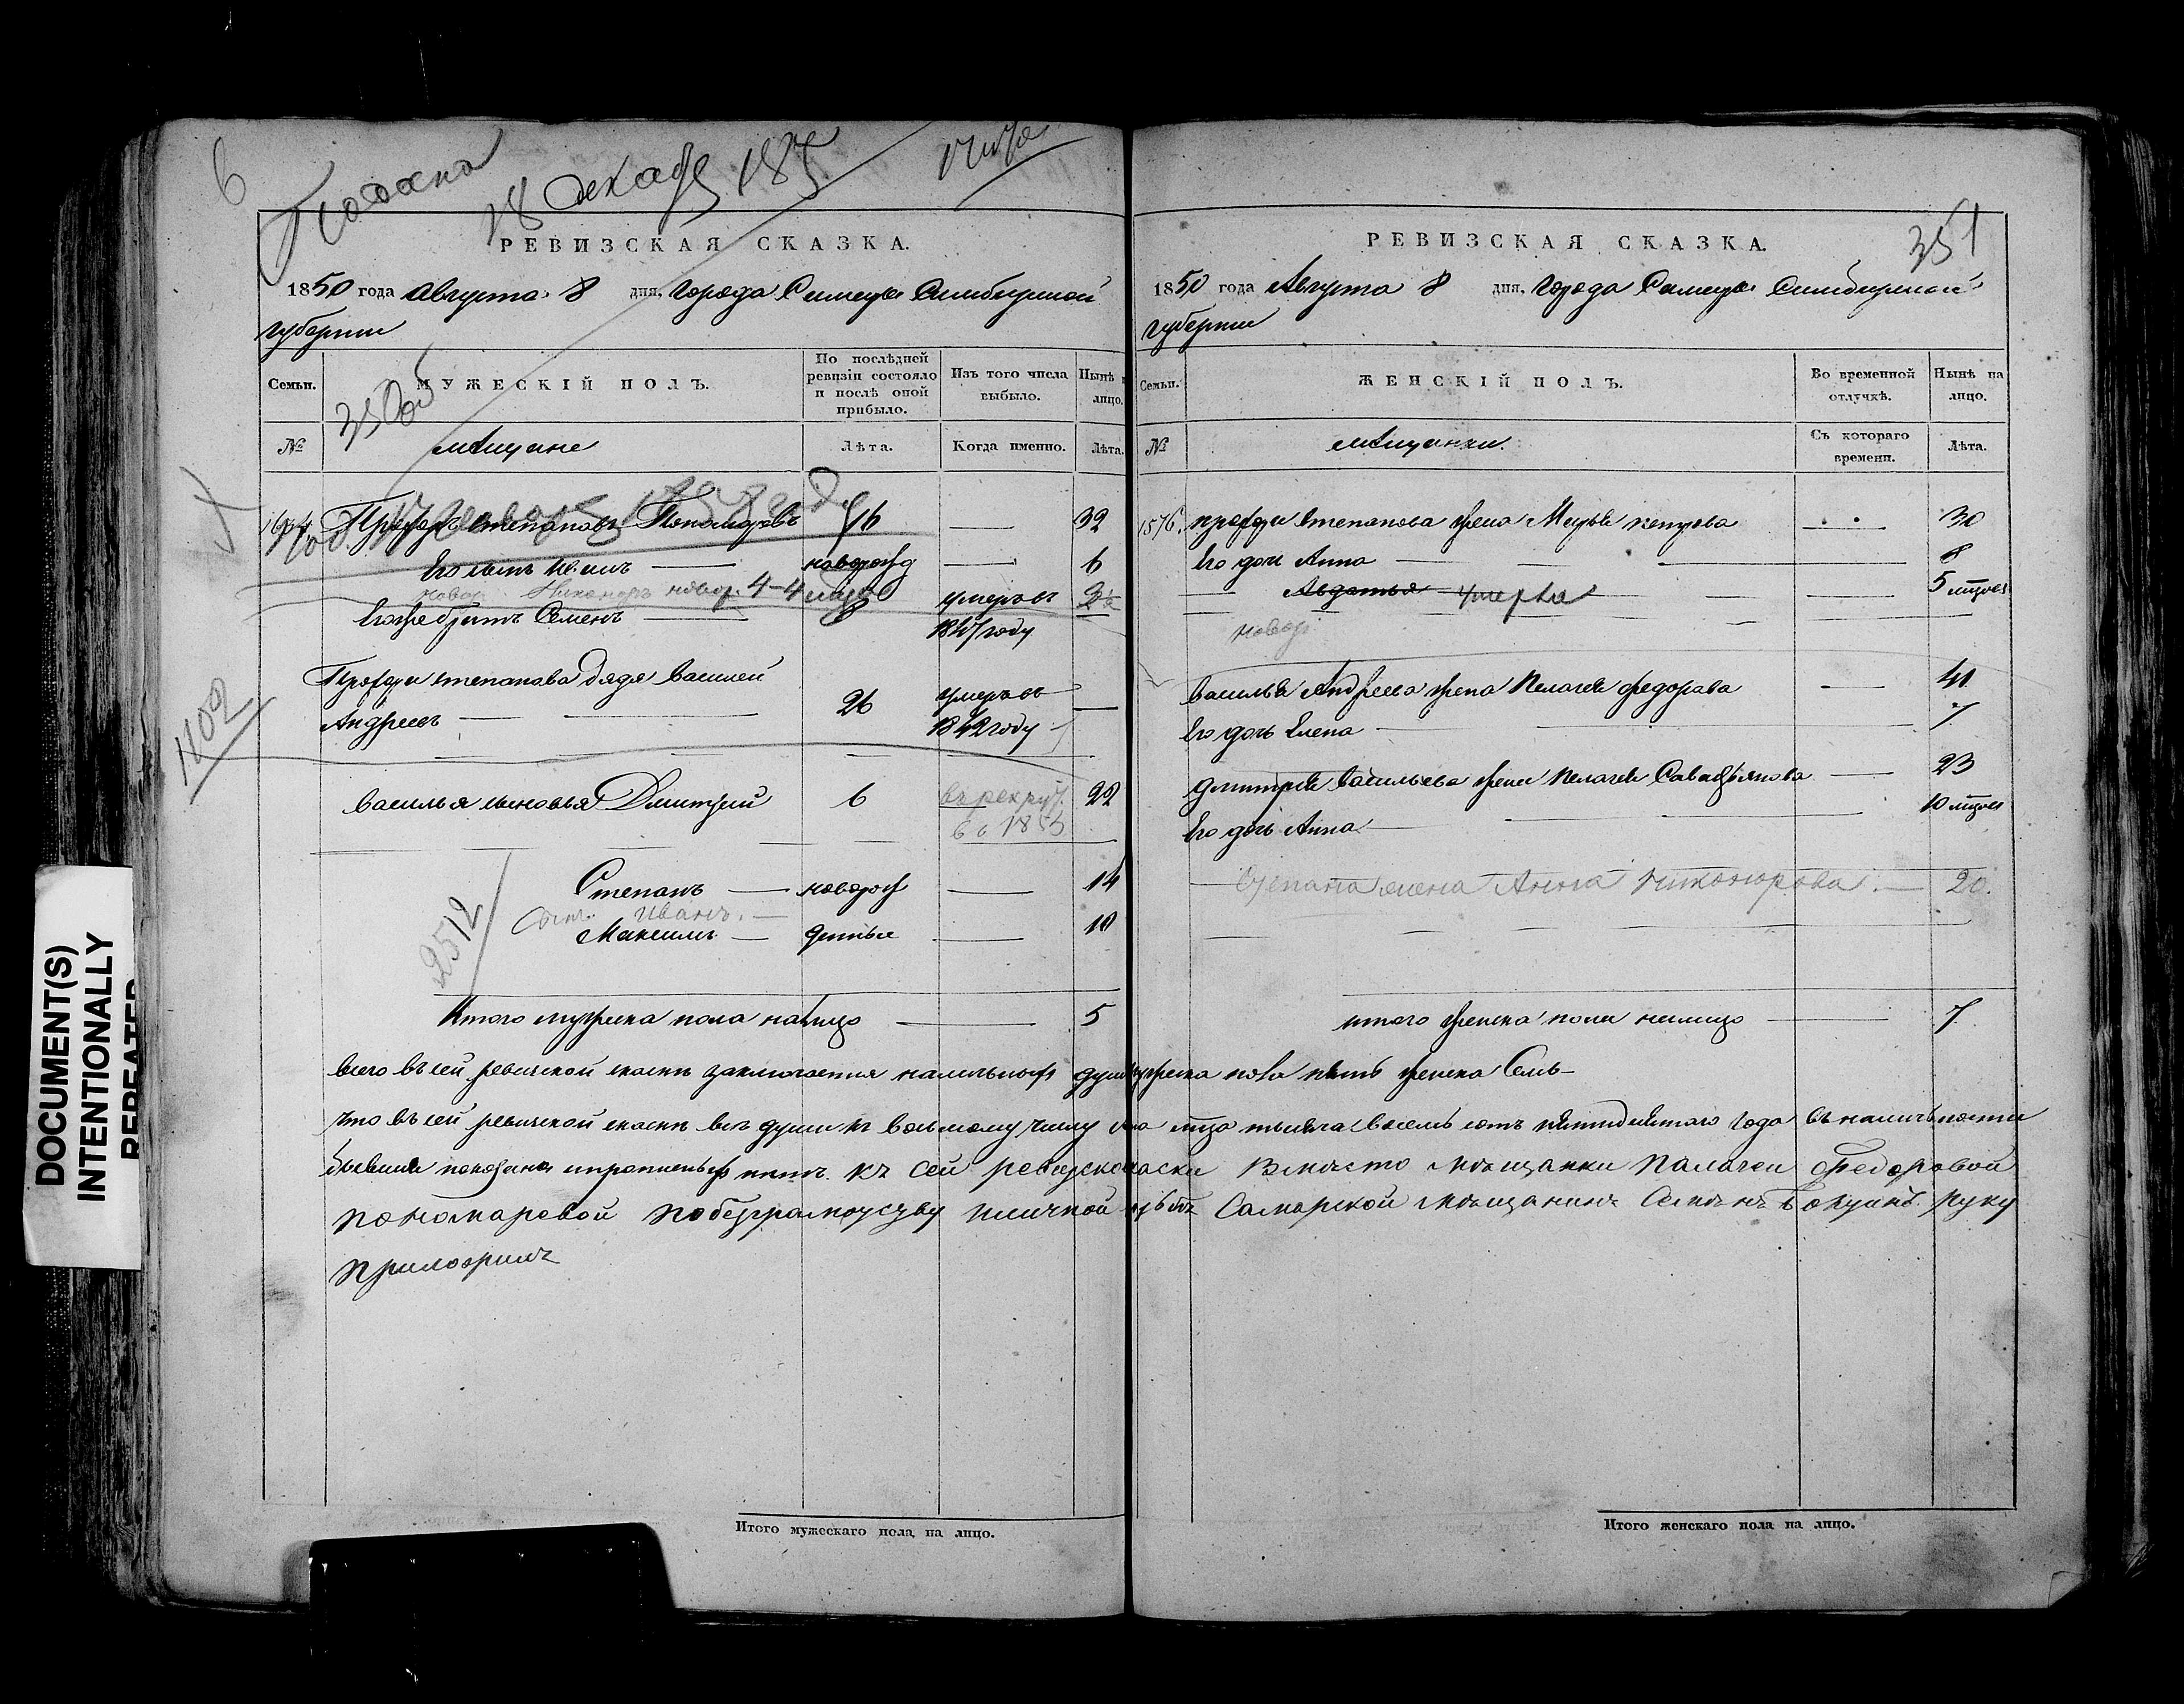 6
Подана
18 декабр 185
РЕВИЗСКАЯ СКАЗКА.
1850 года августа 8 дня, города Самары Симбирской
губернии
Семьи.
МУЖЕСКІЙ ПОЛЪ.
По послѣдней ревизіи состояло и послѣ оной прибыло.
Изъ того числа выбыло.
Нынѣ на лицо.
№
мещане
Лѣта.
Когда именно.
Лѣта.
Профоръ степановъ Пономаревъ 16 — 32
Его сынъ Иванъ — новорож — 6
новор. Никаноръ новор. 4-4 мѣся
Егожебратъ Семенъ — 8 умеръ въ 1847 году
Профора степанова дядя Василей
Андреевъ — 26 умеръ въ 1842 году —
1102
Василья сыновья Дмитрий 6 въ рекрут. 22
Степанъ — новорож — 14
Сынъ Иванъ. —
Максимъ — 10
2512
Итого мужеска пола налицо — 5
РЕВИЗСКАЯ СКАЗКА.
351
1850 года Августа 8 дня, города Самары Симбирской
губернии
Семьи.
ЖЕНСКІЙ ПОЛЪ.
Во временной отлучкѣ.
Нынѣ на лицо.
№
мещанки.
Съ котораго времени.
Лѣта.
1576. профора степанова жена Марья петрова — 30
Его дочь Анна — 8
Авдотья умерла — 5 мцовъ
новор
Василья Андреева жена Пелагея федорова — 41
Его дочь Елена — 7
дмитрия Васильева жена Пелагея Савастьянова — 23
Его дочь Анна — 10 мцовъ
Степана жена Анна Никонорова. — 20.
итого женска пола налицо — 7
всего въ сей ревизской сказкѣ заключается наличныхъ душъ мужеска пола пять женска Семь —
что въ сей ревизской сказкѣ всѣ души къ восьмому числу мца тысяча восемь сотъ пятидесятаго года въ наличности
бывшия показаны и прописныхъ нѣтъ. Къ сей ревизской сказки вместо мѣщанки Палагеи Федоровой
пономаревой Самарской мѣщанинъ руку
приложилъ
Итого мужескаго пола на лицо.
Итого женскаго пола на лицо.
DOCUMENT(S)
INTENTIONALLY
REPEATED